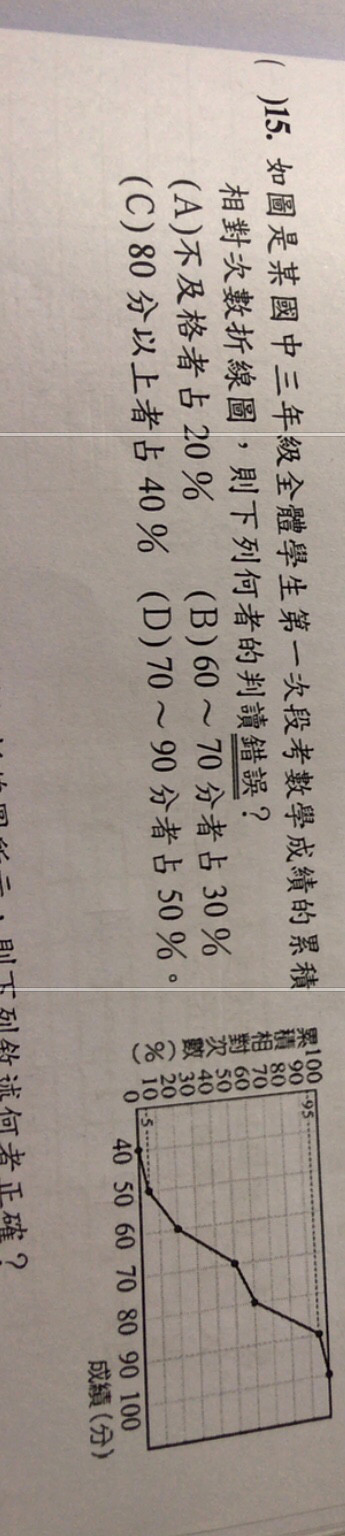 (　)15. 如圖是某國中三年級全體學生第一次段考數學成績的累積
相對次數折線圖，則下列何者的判讀錯誤？
(A)不及格者占 20％　(B)60～70 分者占 30％
(C)80 分以上者占 40％　(D)70～90 分者占 50％。
累積相對次數(％)
100
90
80
70
60
50
40
30
20
10
0
95
5
40 50 60 70 80 90 100
成績(分)
則下列敘述何者正確？